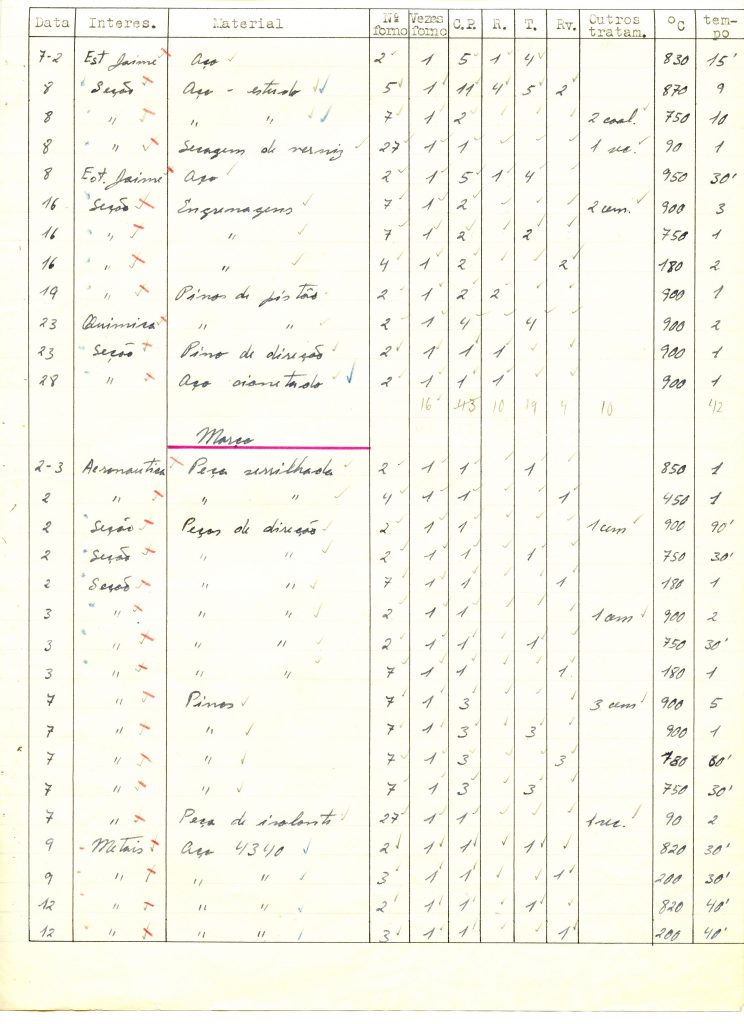 Data Interes. Material Nº forno Vezes forno C.P. R. T. Rv. Outros tratam. ºC tempo
7-2 Est Jaime Aço 2 1 5 1 4 830 15'
8 Seção Aço - estudo 5 1 11 4 5 2 870 9
8 " " " 7 1 2 2 coal. 750 10
8 " Secagem de verniz 27 1 1 1 sec. 90 1
8 Est. Jaime Aço 2 1 5 1 4 950 30'
16 Seção Engrenagens 7 1 2 2 cem. 900 3
16 " " 7 1 2 2 750 1
16 " " 4 1 2 2 180 2
19 " Pinos de pistão 2 1 2 2 900 1
23 Química " " 2 1 4 4 900 2
23 Seção Pino de direção 2 1 1 1 900 1
28 " Aço cianetado 2 1 1 1 900 1
16 43 10 19 4 10 42
Março
2-3 Aeronautica Peça serrilhada 2 1 1 1 850 1
2 " " " 4 1 1 1 450 1
2 Seção Peças de direção 2 1 1 1 cem 900 90'
2 Seção " " 2 1 1 1 750 30'
2 Seção " " 7 1 1 1 180 1
3 " " " 2 1 1 1 cem 900 2
3 " " " 2 1 1 1 750 30'
3 " " " 7 1 1 1 180 1
7 " Pinos 7 1 3 3 cem 900 5
7 " " 7 1 3 3 900 1
7 " " 7 1 3 3 780
7 " " 7 1 3 3 750 30'
7 " Peça de isolante 27 1 1 1 sec. 90 2
9 Metais Aço 4340 2 1 1 1 820 30'
9 " " " 3 1 1 1 200 30'
12 " " " 2 1 1 1 820 40'
12 " " " 3 1 1 1 200 40'